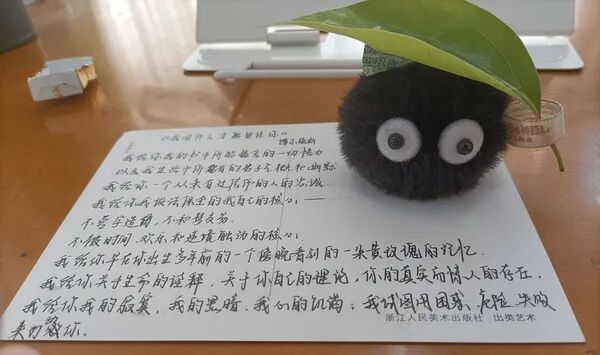 《我用什么才能留住你》
博尔赫斯
我给你我的书中所能蕴含的一切悟力
以及我生活中所能有的男子气概和幽默
我给你一个从未有过信仰的人的忠诚
我给你我设法保全的我自己的核心——
不营字造句,不和梦交易
不被时间、欢乐和逆境触动的核心.
我给你早在你出生多年前的一个傍晚看到的一朵黄玫瑰的记忆.
我给你关于生命的诠释,关于你自己的理论,你的真实而惊人的存在.
我给你我的寂寞,我的黑暗、我心的饥渴;我试图用困惑、危险、失败
来打动你.
浙江人民美术出版社 出类艺术